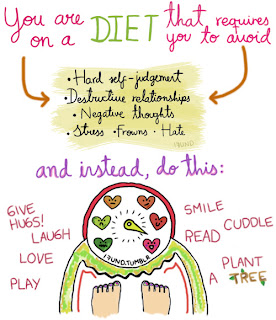 You are on a DIET that requires you to avoid
• Hard self-judgement
• Destructive relationships
• Negative thoughts
• Stress • Frowns • Hate
and instead, do this:
GIVE HUGS!
LAUGH
LOVE
PLAY
SMILE
CUDDLE
READ
PLANT
A TREE
17UND.TUMBLR